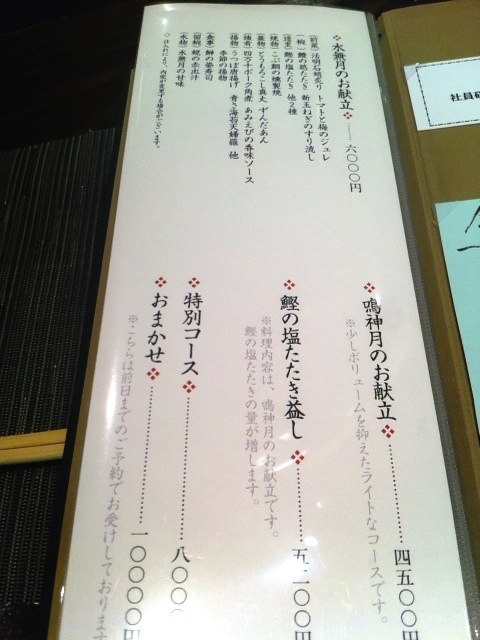 水無月のお献立
六〇〇〇円
（前菜）活明石蛸炙り トマトと梅のジュレ
（椀）鱧の葛たたき 新玉ねぎのすり流し
（造里）鰹の塩たたき 他2種
（焼物）こぶ鯛の燻製焼
（蓋物）とうもろこし真丈 ずんだあん
（強肴）四万十ポーク角煮 あみえびの香味ソース
季節の揚物
（揚物）うつぼ唐揚げ 青さ海苔天婦羅 他
（食事）鯵の姿寿司
（留椀）蜆の赤出汁
（水物）水無月の甘味
◇仕入れにより、内容が変更する場合がございます。
鳴神月のお献立
四五〇〇円
※少しボリュームを抑えたライトなコースです。
鰹の塩たたき益し
五一〇〇円
※料理内容は、鳴神月のお献立です。
鰹の塩たたきの量が増します。
特別コース
八〇〇〇
おまかせ
一〇〇〇〇円
※こちらは前日までのご予約でお受けしております
社員研